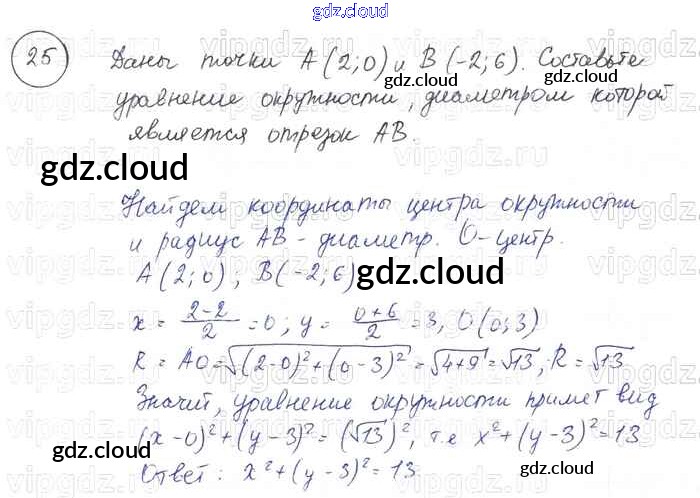 gdz.cloud
25) Даны точки A(2;0) и B(-2;6). Составьте
gdz.cloud
уравнение окружности, диаметром которой
gdz.cloud
является отрезок AB.
gdz.cloud
Найдем координаты центра окружности
и радиус AB - диаметр. O-центр.
A(2;0), B(-2;6)
gdz.cloud
x = \frac{2-2}{2} = 0; y = \frac{0+6}{2} = 3, O(0;3)
R = AO = √((2-0)²+(0-3)²) = √(4+9) = √13, R = √13
Значит, уравнение окружности примет вид
(x-0)²+(y-3)²=(√13)², т.е x²+(y-3)²=13
gdz.cloud
gdz.cloud
Ответ: x²+(y-3)²=13
gdz.cloud